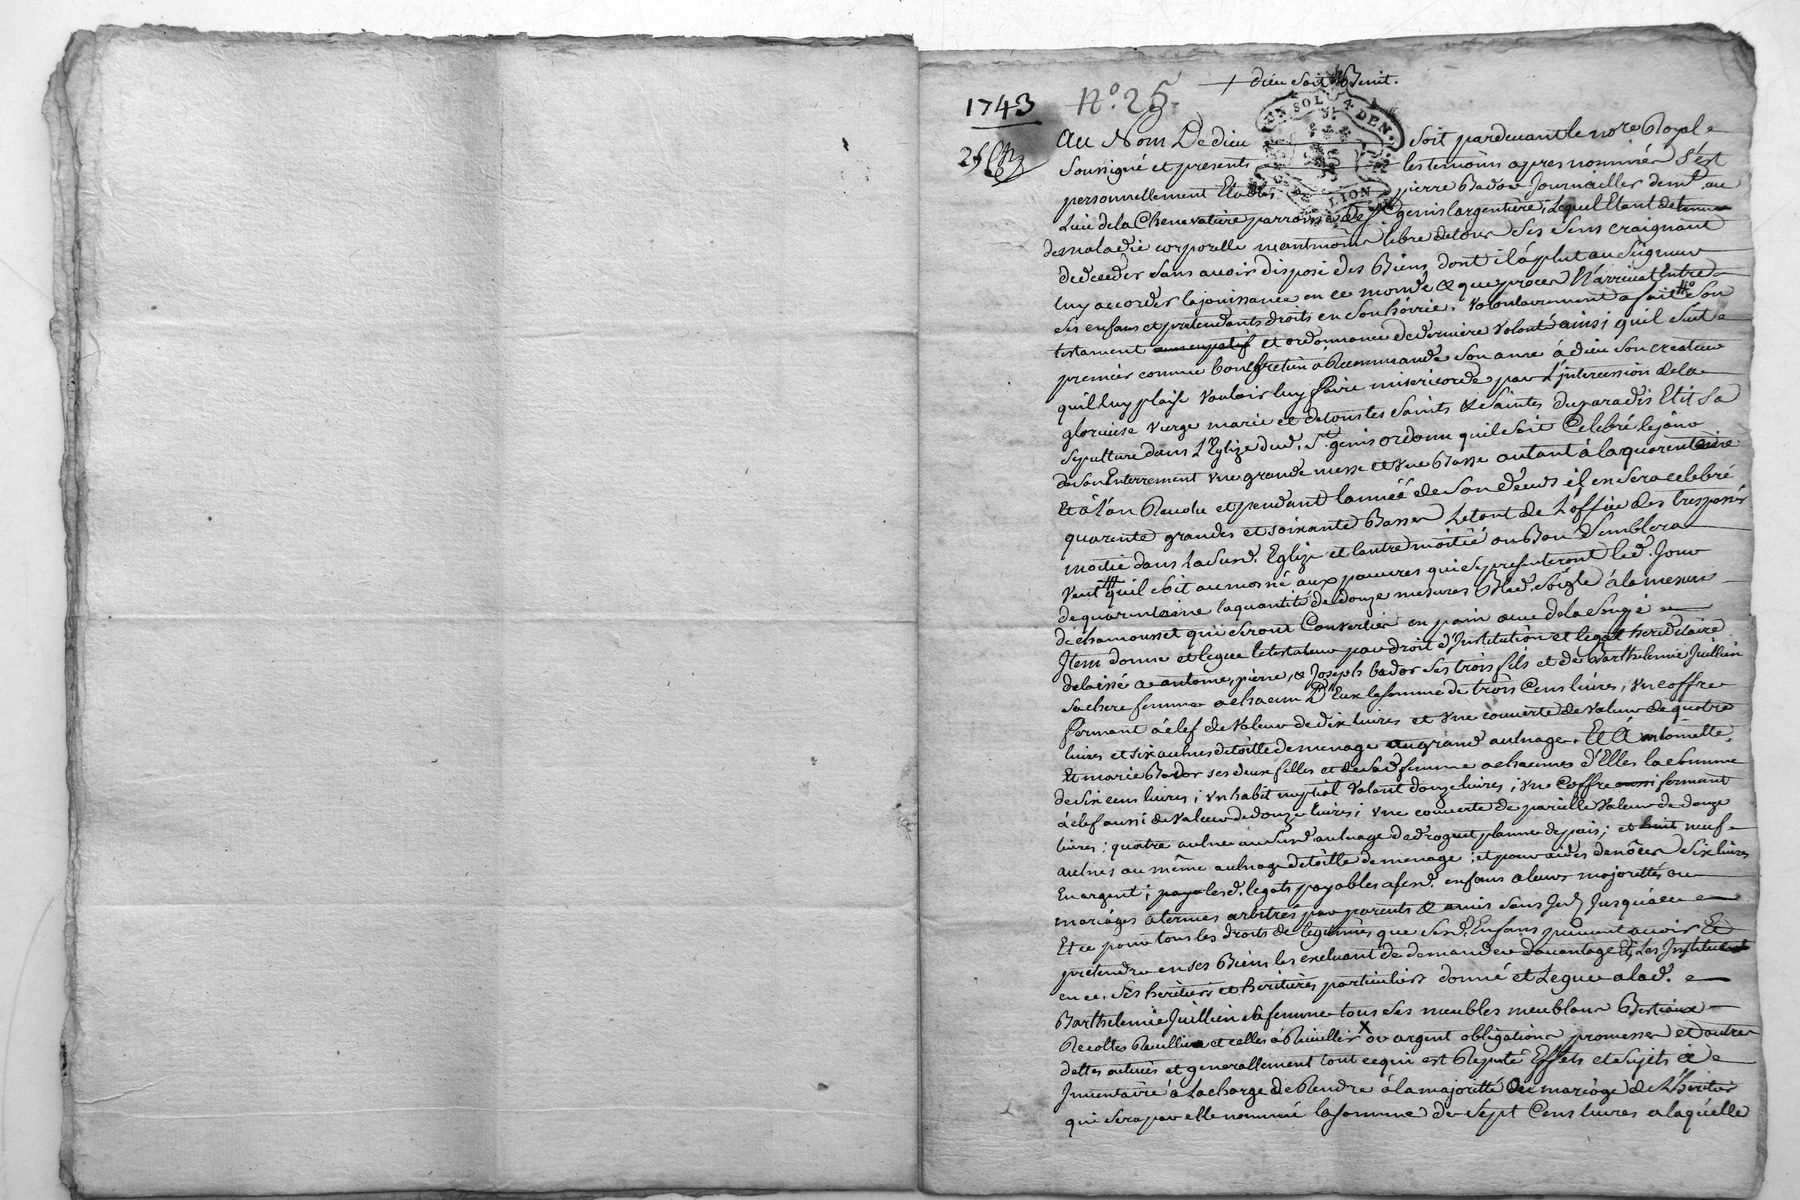 + dieu soit Benit.
1743
N.º 25.
UN SOL 4 DEN.
LION
Au Nom De dieu soit pardevant le nore Royal
soussigné et presents les temoins apres nommés s'est
personnellement Etablis pierre Bador Journallier demt. au
Lieu de la Chenevatiere parroisse de St genis largentiere, Lequel Etant detenu
de maladie corporelle neantmoins libre de tous ses sens craignant
de deceder sans avoir disposé des Biens dont il a plut au Seigneur
luy accorder la jouissance en ce monde & que proces N'arrivat Entre
ses enfans et pretendants droits en son hoirie, volontairement a fait son
testament nuncupatif et ordonnance de derniere volonté ainsi quil suit
premier comme bon Chretien a Recommandé son ame à dieu son createur
quil luy plaise vouloir luy faire misericorde par L'intercession de la
glorieuse vierge marie et de tous les saints & saintes du paradis Elit sa
sepulture dans L'Eglize dud. St. genis ordonne quil soit Celebré le jour
de son Enterrement une grande messe et une Basse autant à la quarentaine
Et à l'an Revolu et pendant l'année de son deceds il en sera celebré
quarente grandes et soixante Basses Le tout de L'office des trespassés
moitié dans La susd. Eglize et lautre moitié ou Bon semblera
veut quil soit aumosné aux pauvres qui se presenteront led. Jour
de quarentaine la quantité de douze mesures Bled seigle à la mesure
de chamousset qui seront Convertier en pain
Item donne et legue le testateur par droit d'Institution et legat hereditaire
delaissé a antoine, pierre, & Joseph bador ses trois fils et de Barthelemie Juillien
sa chere femme a chacun D'Eux la somme de trois Cens livres, un coffre
fermant à clef de valeur de dix livres et une couverte de valeur de quatre
livres et six aulnes de toille de menage au grand aulnage. Et A antoinette
Et marie Bador ses deux filles et de sad. femme a chacunes d'Elles la somme
de six cens livres; un habit nuptial valant douze livres; un Coffre aussi fermant
à clef aussi de valeur de douze livres; une couverte de pareille valeur de douze
livres; quatre aulne au susd. aulnage de droguet planne de pais; et huit neuf
aulnes au même aulnage de toille de menage; et pour aides de nôces six livres
En argent; lesd. legats payables a sesd. enfans a leurs majorittés ou
mariages a termes arbitrés par parents & amis sans
Et ce pour tous les droits de legitimes que sesd. Enfans peuvent avoir &
pretendre en ses Biens les excluant de demander davantage Et Les Instituent
en ce, ses heritiers et heritieres particuliers donne et Legue a lad.
Barthelemie Juillien sa femme tous ses meubles meublans Bestiaux
Recoltes Reuillies et celles à Reuillir X or argent obligations promesses et autres
dettes actives et generallement tout ce qui est Reputé Effets et sujets a
Inventaire à la charge de Rendre à la majoritté ou mariage de L'heritier
qui sera par elle nommé la somme de sept Cens livres a laquelle